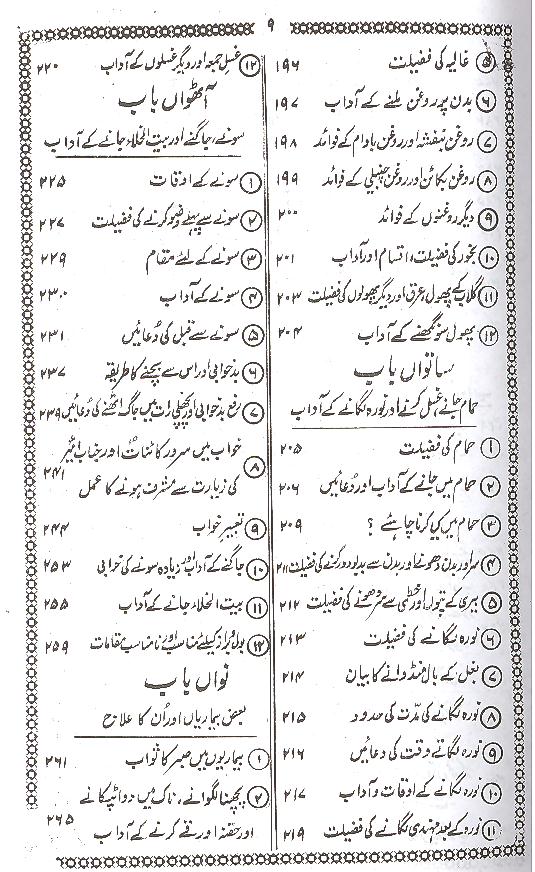 ۹
۵ غالیہ کی فضیلت ۱۹۶
۶ بدن پر روغن ملنے کے آداب ۱۹۷
۷ روغن بنفشہ اور روغن بادام کے فوائد ۱۹۸
۸ روغن بکائن اور روغن چنبیلی کے فوائد ۱۹۹
۹ دیگر روغنوں کے فوائد ۲۰۰
۱۰ بخور کی فضیلت، اقسام اور آداب ۲۰۱
۱۱ گلاب کے پھول، عرق اور دیگر پھولوں کی فضیلت ۲۰۳
۱۲ پھول سونگھنے کے آداب ۲۰۴
ساتواں باب
حمام جانے، غسل کرنے اور نورہ لگانے کے آداب
۱ حمام کی فضیلت ۲۰۵
۲ حمام میں جانے کے آداب اور دُعائیں ۲۰۶
۳ حمام میں کیا کرنا چاہئے ؟ ۲۰۹
۴ سر اور بدن دھونے اور بدن سے بدبو دور کرنے کی فضیلت ۲۱۱
۵ بیری کے پتوں اور خطمی سے سر دھونے کی فضیلت ۲۱۲
۶ نورہ لگانے کی فضیلت ۲۱۳
۷ بغل کے بال منڈوانے کا بیان ۲۱۴
۸ نورہ لگانے کی مدّت کی حدود ۲۱۵
۹ نورہ لگاتے وقت کی دعائیں ۲۱۶
۱۰ نورہ لگانے کے اوقات و آداب ۲۱۷
۱۱ نورہ کے بعد مہندی لگانے کی فضیلت ۲۱۹
۱۲ غسلِ جمعہ اور دیگر غسلوں کے آداب ۲۲۰
آٹھواں باب
سونے، جاگنے اور بیت الخلاء جانے کے آداب
۱ سونے کے اوقات ۲۲۵
۲ سونے سے پہلے وضو کرنے کی فضیلت ۲۲۷
۳ سونے کے لئے مقام ۲۲۹
۴ سونے کے آداب ۲۳۰
۵ سونے سے قبل کی دُعائیں ۲۳۱
۶ بدخوابی اور اس سے بچنے کا طریقہ ۲۳۷
۷ رفع بدخوابی اور پچھلی رات میں جاگ اٹھنے کی دُعائیں ۲۳۹
۸ خواب میں سرور کائنات اور جناب امیر
کی زیارت سے مشرف ہونے کا عمل ۲۴۱
۹ تعبیر خواب ۲۴۴
۱۰ جاگنے کے آداب اور زیادہ سونے کی خرابی ۲۵۳
۱۱ بیت الخلاء جانے کے آداب ۲۵۵
۱۲ بول و براز کیلئے مناسب اور نامناسب مقامات ۲۵۹
نواں باب
بعض بیماریاں اور اُن کا علاج
۱ بیماریوں میں صبر کا ثواب ۲۶۱
۲ پچھنا لگوانے، ناک میں دوا ٹپکانے
اور حقنہ اور قے کرنے کے آداب ۲۶۵